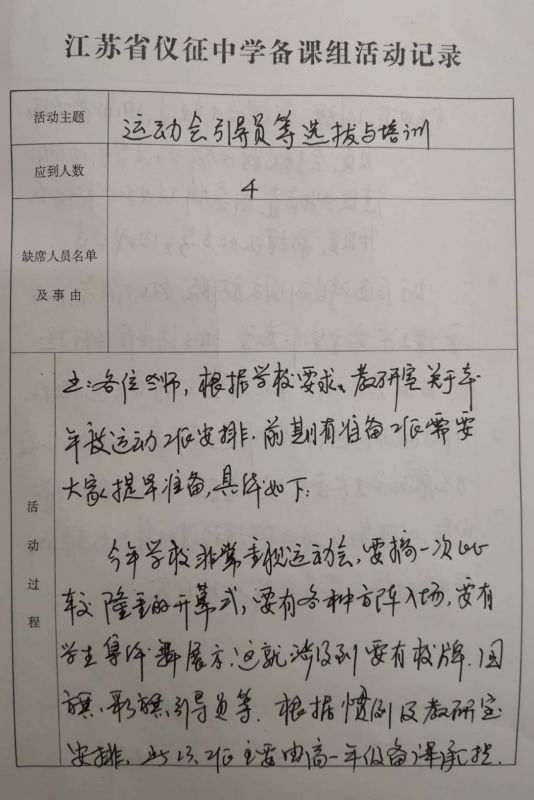 江苏省仪征中学备课组活动记录
活动主题 运动会引导员等选拔与培训
应到人数 4
缺席人员名单
及事由
活动过程
王:各位老师,根据学校要求、教研室关于本
年度运动工作安排.前期有准备工作需要
大家提早准备,具体如下:
今年学校非常重视运动会,要搞一次比
较隆重的开幕式,要有各种方阵入场,要有
学生集体舞展示.这就涉及到要有校牌.国
旗、彩旗、引导员等.根据惯例及教研室
安排,此项工作主要由高一年级备课承担.